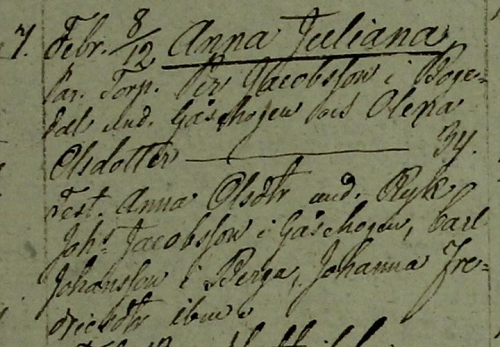 7. Febr. 8/12 Anna Juliana
Par. Torp. Per Jacobsson i Boge-
dal und. Gåshogen hus Olena
Olsdotter — 34.
Test. Anna Olsdtr und. Ryk
Johs Jacobsson i Gåsehogen, Carl
Johansson i Berga, Johanna Fre-
dricksdtr ibm.